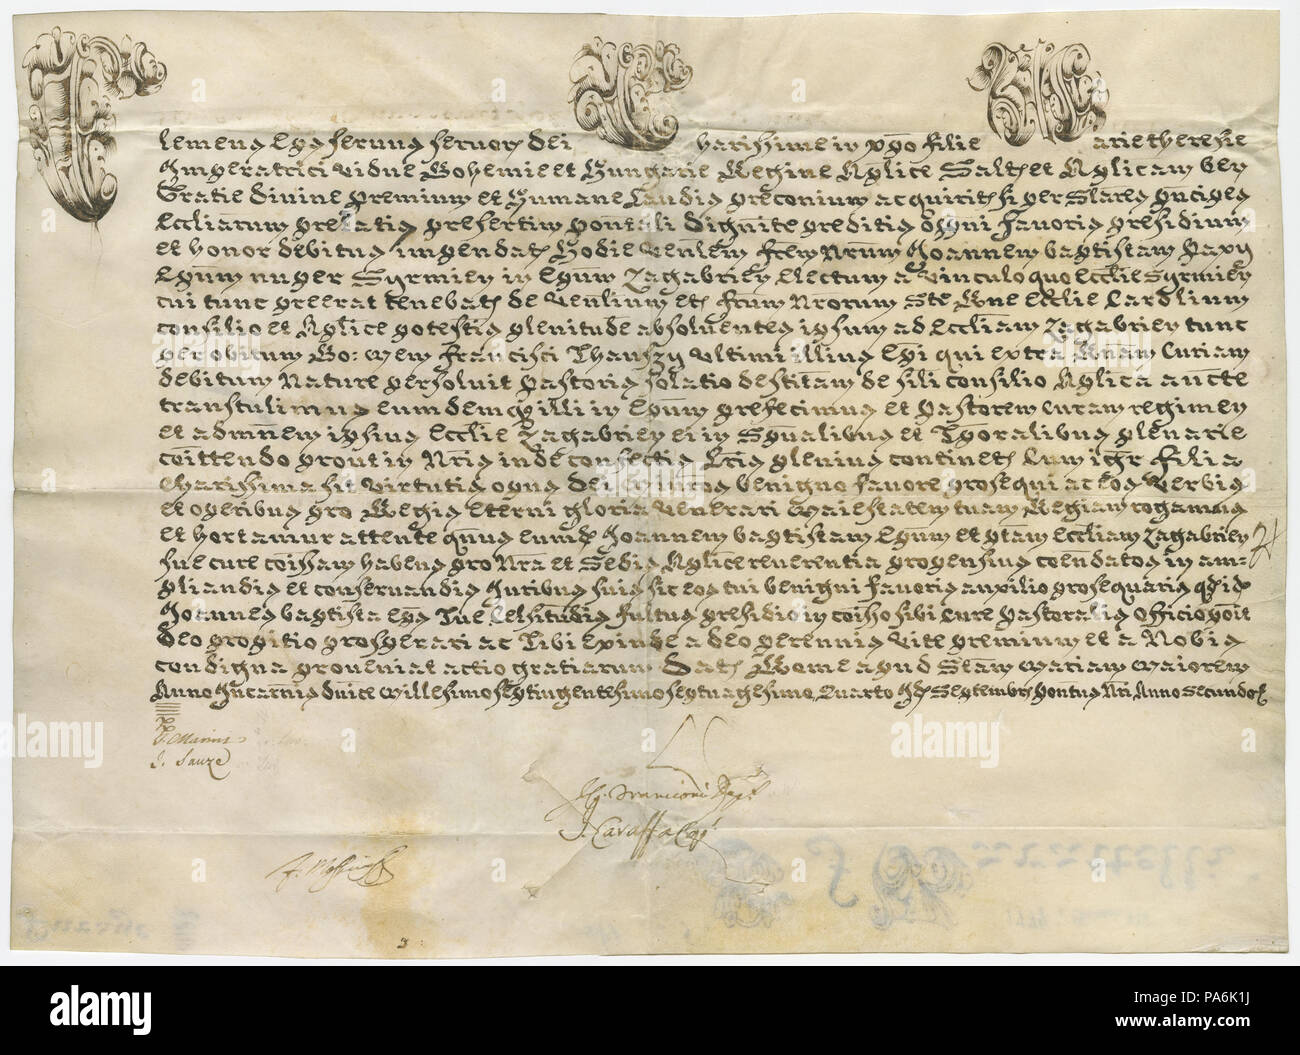 Clemens Eps servus servor. dei Charissime in xpo filie Marie Theresie
Imperatrici Vidue Bohemie et Hungarie Regine Aplice Saltm et Aplicam ben
Gratie divine premium et humane Laudis preconium acquiritr si per Seculares pncipes
Eccliarum prelatis presertim pontcali dignite preditis opportuni favoris presidium
et honor debitus impendatr Hodie Venlem frem Nrum Joannem baptistam Paxy
Epum nuper Syrmien in Epum Zagabrien Electum a vinculo quo Ecclie Syrmien
cui tunc preerat tenebatr de Venlium etr frum Nrorum Ste Rne Ecclie Cardlium
consilio et Aplice potestis plenitude absolventes ipsum ad Eccliam Zagabrien tunc
per obitum Bo: mem Francisci Thauszy ultimi illius Epi qui extra Rnam Curiam
debitum Nature persoluit Pastoris solatio destitam de sili consilio Aplica aucte
transtulimus eumdemq illi in Epum prefecimus et Pastorem curam regimen
et admnem ipsius Ecclie Zagabrien ei in Spualibus et Tporalibus plenarie
coittendo prout in Nris inde confectis Lris plenius continetr Cum igr Filia
Charissima sit Virtutis opus Dei Mnitros benigno favore prosequi ac eos Verbis
et operibus pro Regis Eterni gloria Venerari Maiestatem tuam Regiam rogamus
et hortamur attente qtnus eumd. Joannem baptistam Epum et ptam Eccliam Zagabrien
sue cure coissam habens pro Nra et Sedis Aplice reverentia propensius coendatos in am=
pliandis et conservandis Juribus suis sic eos tui benigni favoris auxilio prosequaris qd id.
Joannes baptista Eps Tue Celsitudis fultus presidio in coisso sibi Cure Pastoralis officio possit
Deo propitio prosperari ac Tibi exinde a deo perennis Vite premium et a Nobis
condigna proveniat actio gratiarum Datr Rome apud Stam Mariam Maiorem
Anno Incarnis Dnice Millesimo Septingentesimo Septuagesimo Quarto Id. Septembris Pontus Nri Anno Secundo
J. Marinis
J. Sauze
J. Cavaffa Cap.
3
alamy
Image ID: PA6K1J
www.alamy.com